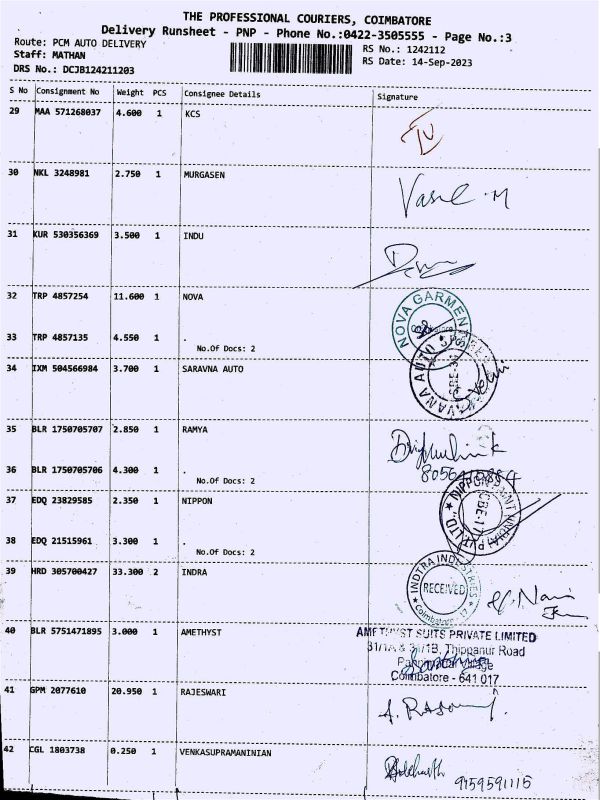 THE PROFESSIONAL COURIERS, COIMBATORE
Delivery Runsheet - PNP - Phone No.:0422-3505555 - Page No.:3
Route: PCM AUTO DELIVERY
RS No.: 1242112
Staff: MATHAN
RS Date: 14-Sep-2023
DRS No.: DCJB124211203
S No Consignment No Weight PCS Consignee Details Signature
29 MAA 571268037 4.600 1 KCS
30 NKL 3248981 2.750 1 MURGASEN
31 KUR 530356369 3.500 1 INDU
32 TRP 4857254 11.600 1 NOVA
NOVA GARMEN
33 TRP 4857135 4.550 1 .
No.Of Docs: 2
34 IXM 504566984 3.700 1 SARAVNA AUTO
35 BLR 1750705707 2.850 1 RAMYA
36 BLR 1750705706 4.300 1 .
No.Of Docs: 2
37 EDQ 23829585 2.350 1 NIPPON
38 EDQ 21515961 3.300 1 .
No.Of Docs: 2
39 HRD 305700427 33.300 2 INDRA
INDTRA INDUSTRIES
RECEIVED
Coimbatore
40 BLR 5751471895 3.000 1 AMETHYST
AMETHYST SUITS PRIVATE LIMITED
Thippanur Road
Coimbatore - 641 017
41 GPM 2077610 20.950 1 RAJESWARI
42 CGL 1803738 0.250 1 VENKASUPRAMANINIAN
9959591115